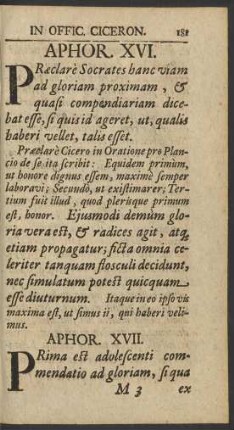 IN OFFIC. CICERON. 181
APHOR. XVI.
PRæclarè Socrates hanc viam
ad gloriam proximam, & 
quasi compendiariam dice-
bat esse, si quis id ageret, ut, qualis
haberi vellet, talis esset.
Præclarè Cicero in Oratione pro Plan-
cio de se ita scribit: Equidem primùm,
ut honore dignus essem, maximè semper
laboravi; Secundò, ut existimarer; Ter-
tium fuit illud, quod plerisque primum
est, honor. Ejusmodi demùm glo-
ria vera est, & radices agit, atq;
etiam propagatur; ficta omnia ce-
leriter tanquam flosculi decidunt,
nec simulatum potest quicquam
esse diuturnum. Itaque in eo ipso vis
maxima est, ut simus ii, qui haberi veli-
mus.
APHOR. XVII.
PRima est adolescenti com-
mendatio ad gloriam, si qua
M 3 ex